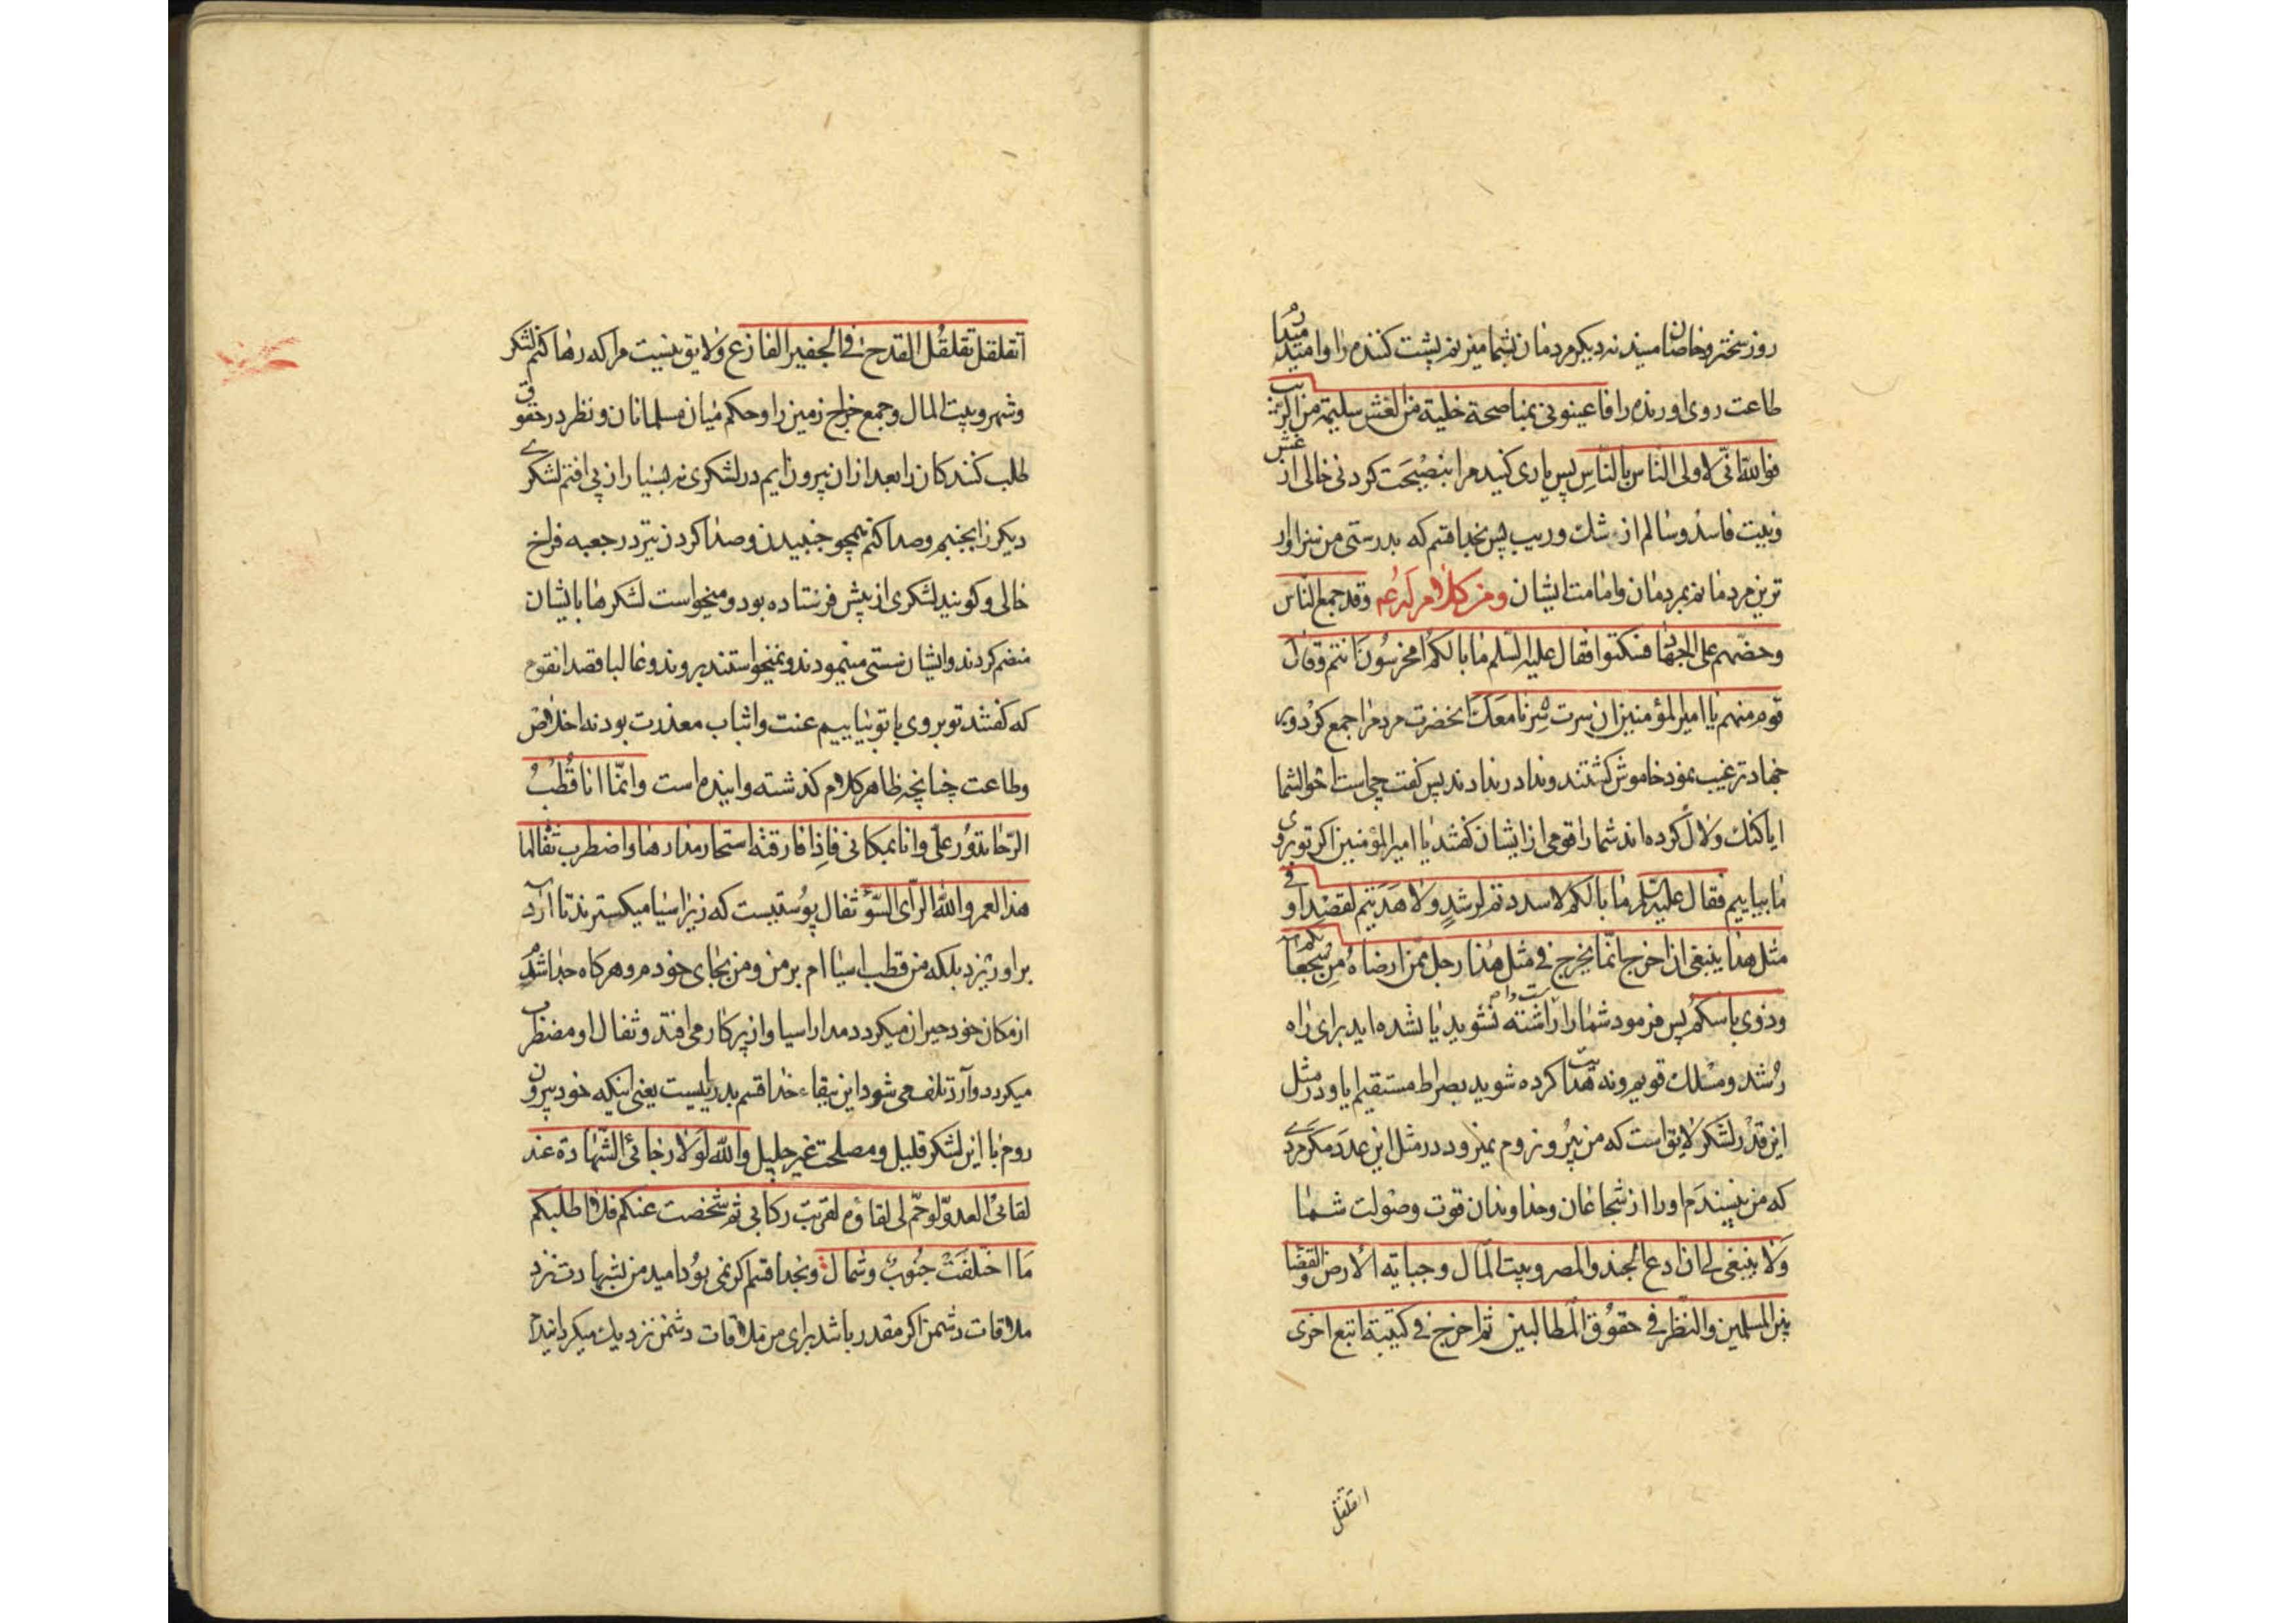 روز سختر و خاصان منید نه دیکر مردمان بشما میزنم پشت کننده را و امید میدارم
طاعت روی اورنده را فاعینونی بمناصحة خلیة من الغش سلیمة من الریب
فوالله انّی لاولی الناس بالناس پس یاری کنید مرا بنصیحت کردنی خالی از غش
ونیت فاسد و سالم از شک و ریب پس بخدا قسم که بدرستی من سزاوار
ترین مردمانم بمردمان و امامت ایشان ومن کلام له عم وقد جمع الناس
وحضّهم علی الجهاد فسکتوا فقال علیه السلم ما بالکم امخرسون انتم وقال
قوم منهم یا امیر المؤمنین ان سرت سرنا معک انحضرت مردم را جمع کرد و بر
جهاد ترغیب نمود خاموش کشتند و ندا درندادند پس کفت چیست احوال شما
ایا کنک و لال کرده اند شما را قومی از ایشان کفتند یا امیر المؤمنین اکر تو بروی
ما بیاییم فقال علیه السلم ما بالکم لا سددتم لرشد ولا هدیتم لقصد او فی
مثل هذا ینبغی ان اخرج انّما یخرج فی مثل هذا رجل ممن ارضاه من شجعانکم
وذوی باسکم پس فرمود شما را راست داشته نشوید یا نشده اید برای راه
رشد و مسلک قویم و نه هدایت کرده شوید بصراط مستقیم ایا و در مثل
این قدر لشکر لایق است که من بیرون روم بیرون نمیرود در مثل این عدد مکر مردی
که من بپسندم او را از شجاعان و خداوندان قوت و صولت شما
ولا ینبغی لی ان ادع الجند والمصر وبیت المال وجبایة الارض والقضا
بین المسلمین والنظر فی حقوق المطالبین ثم اخرج فی کتیبة اتبع اخری
اتقلقل
اتقلقل تقلقل القدح فی الجفیر الفارغ ولایق نیست مرا که رها کنم لشکر
و شهر و بیت المال و جمع خراج زمین را و حکم میان مسلمانان و نظر در حقوق
طلب کنندکان را بعد از ان بیرون ایم در لشکری نه بسیار از پی افتم لشکری
دیکر را بجنبم و صدا کنم همچو جنبیدن و صدا کردن تیر در جعبه فراخ
خالی و کویند لشکری از پیش فرستاده بود و میخواست لشکرها با یشان
منضم کردند و ایشان سستی مینمودند و نمیخواستند بروند و غالبا قصد انقوم
که کفتند تو بروی با تو بیاییم عنت و اثباب معذرت بود نه اخلاص
و طاعت چنانچه ظاهر کلام کذشته و اینده است وانّما انا قطب
الرّحا تدور علیّ وانا بمکانی فاذا فارقته استحار مدارها واضطرب ثفالها
هذا لعمرو الله الرأی السّوء ثفال پوستیست که زیر اسیا میکسترند تا آرد
بر او ریزد بلکه من قطب اسیاام بر من و من بجای خودم و هرکاه جدا شدم
از مکان خود حیران میکردد مدار اسیا و از پرکار می افتد و ثفال او مضطرب
میکردد و آرد تلف می شود این ببقاء خدا قسم بد راییست یعنی اینکه خود بیرون
روم با این لشکر قلیل و مصلحت غیر جلیل والله لولا رجائی الشهادة عند
لقائی العدوّ لو حمّ لی لقاؤه لقربت رکابی ثم شخصت عنکم فلا اطلبکم
ما اختلفت جنوب وشمال وبخدا قسم اکر نمی بود امید من بشهادت نزد
ملاقات دشمن اکر مقدر باشد برای من ملاقات دشمن نزدیک میکردانیدم